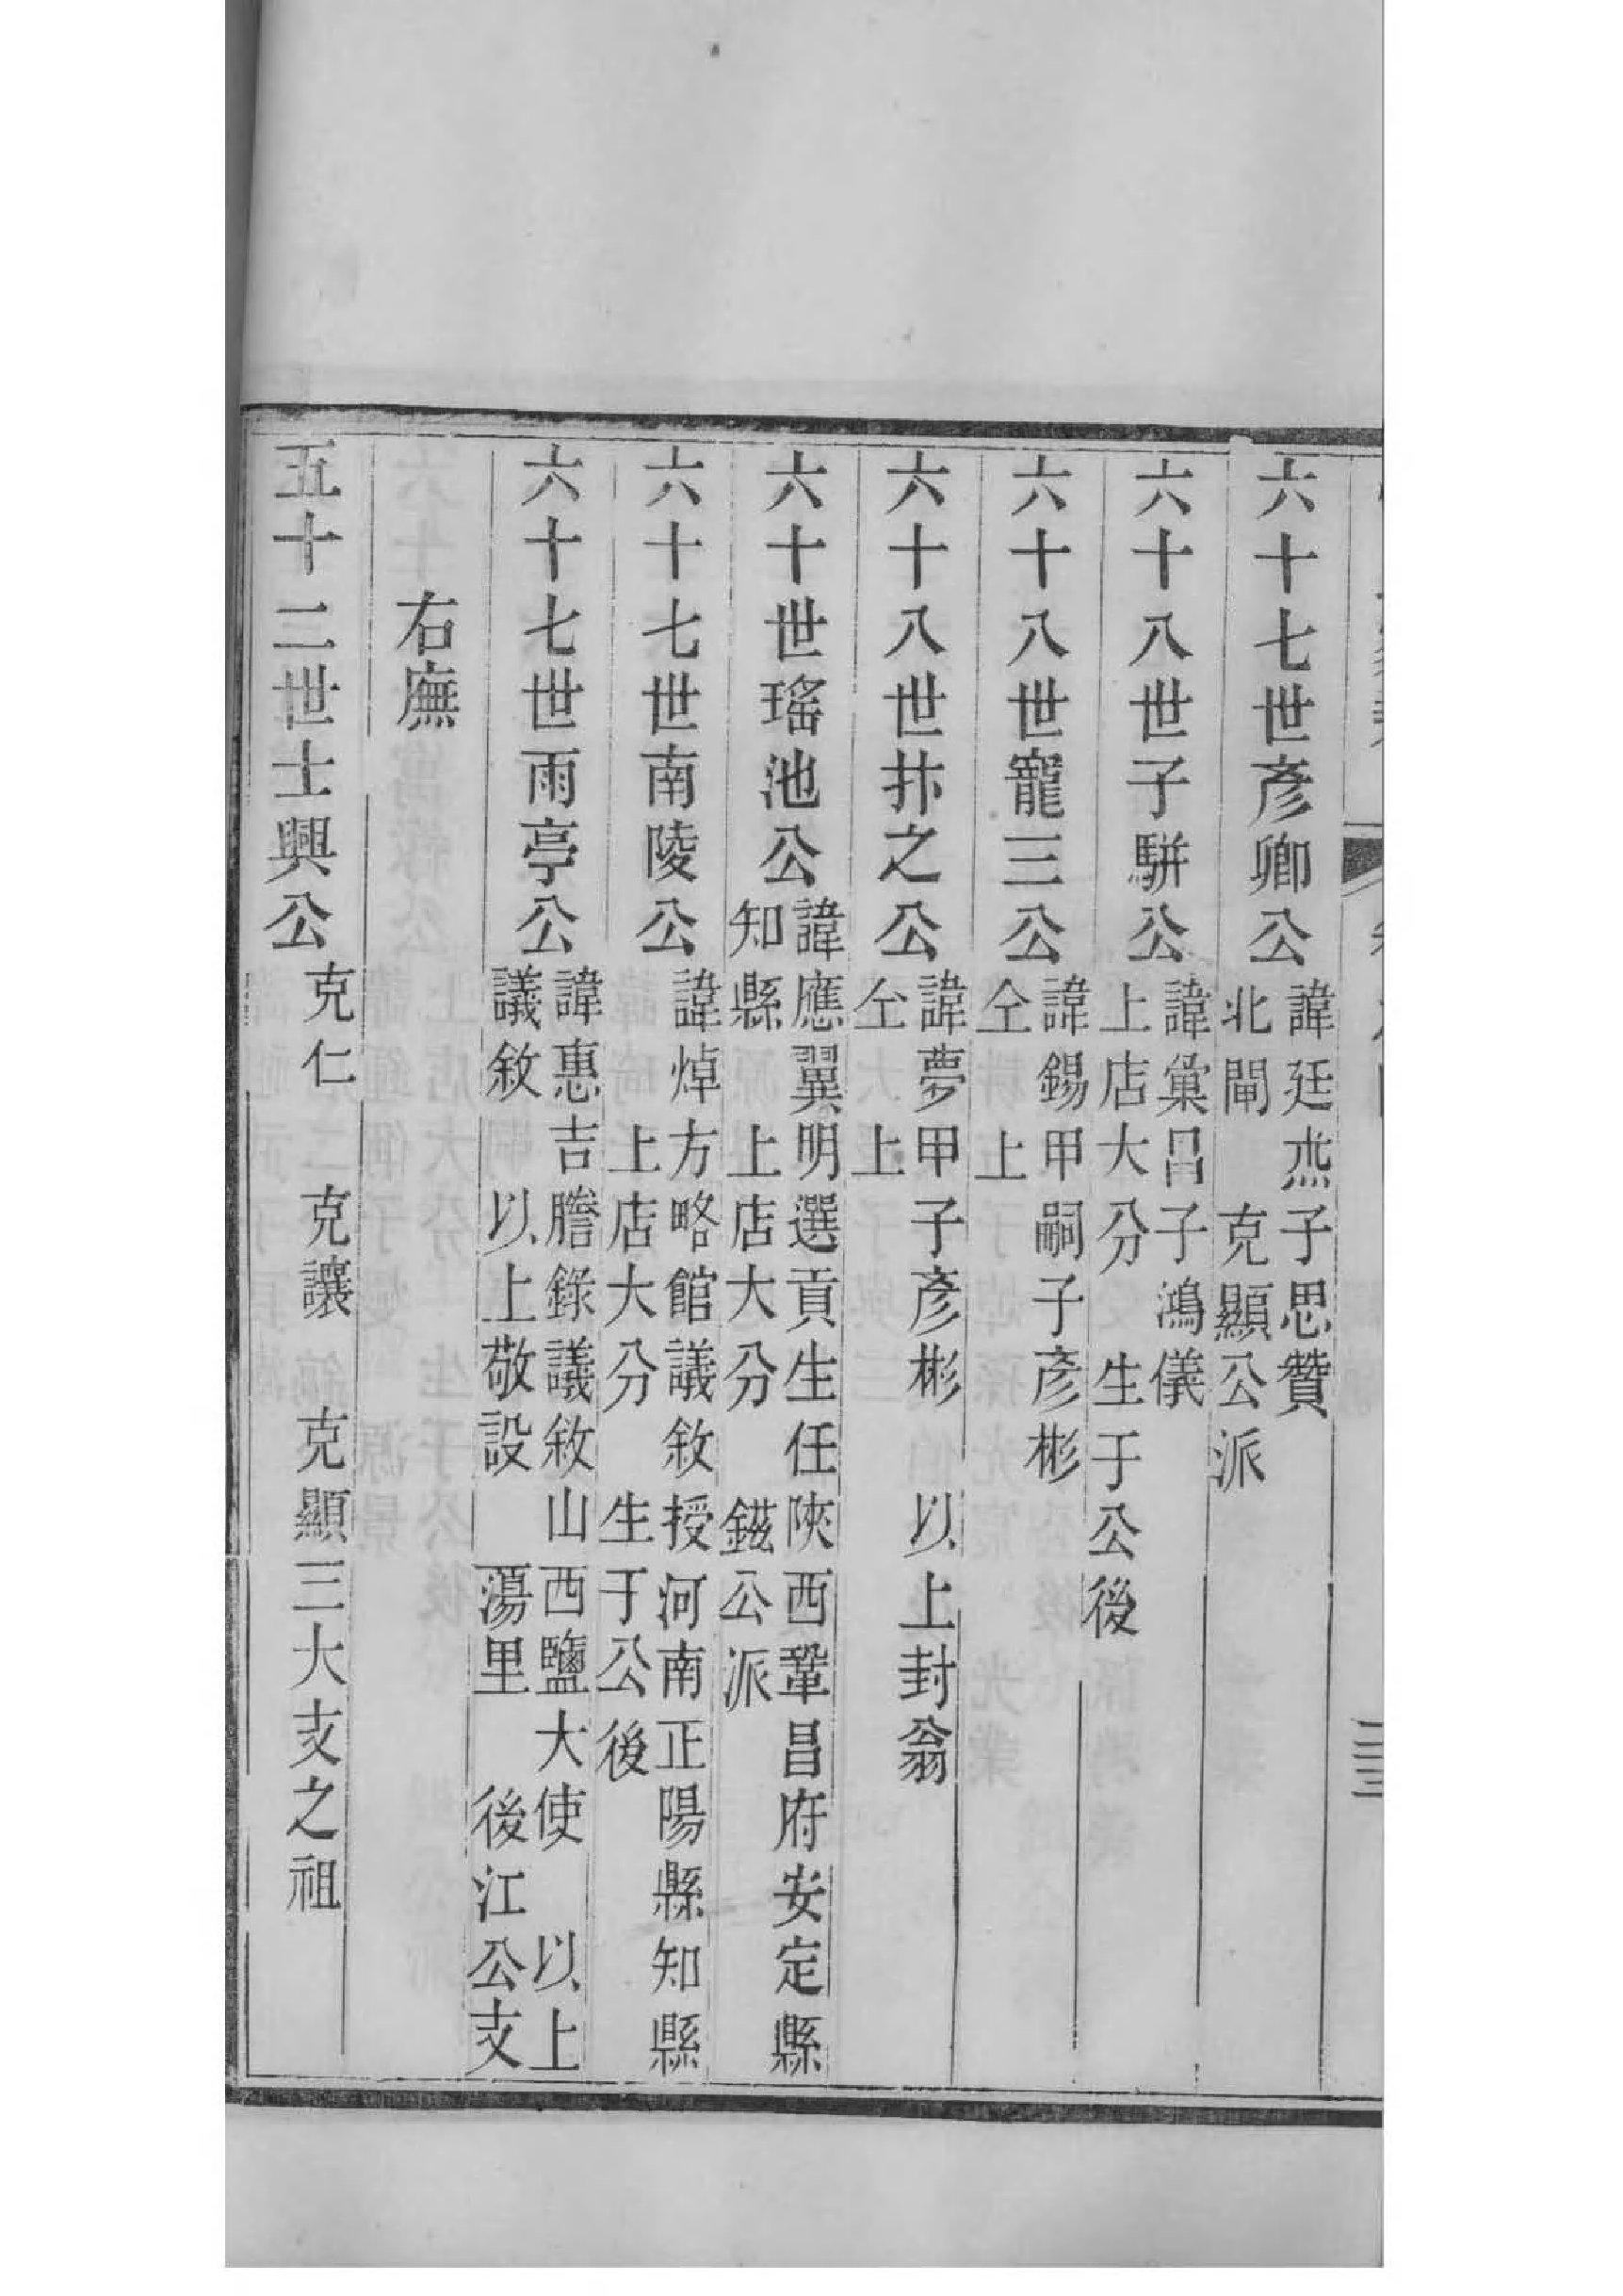 六十七世彥卿公 諱廷杰子思贊
北閘 克顯公派
六十八世子駢公 諱彙昌子鴻儀
上店大分 生于公後
六十八世寵三公 諱錫甲嗣子彥彬
仝上
六十八世抃之公 諱夢甲子彥彬 以上封翁
仝上
六十世瑤池公 諱應翼明選貢生任陝西鞏昌府安定縣
知縣 上店大分 鎡公派
六十七世南陵公 諱焯方略館議敘授河南正陽縣知縣
上店大分 生于公後
六十七世雨亭公 諱惠吉謄錄議敘山西鹽大使 以上
議敘 以上敬設 蕩里 後江公支
右廡
五十二世士興公 克仁 克讓 克顯三大支之祖
三三